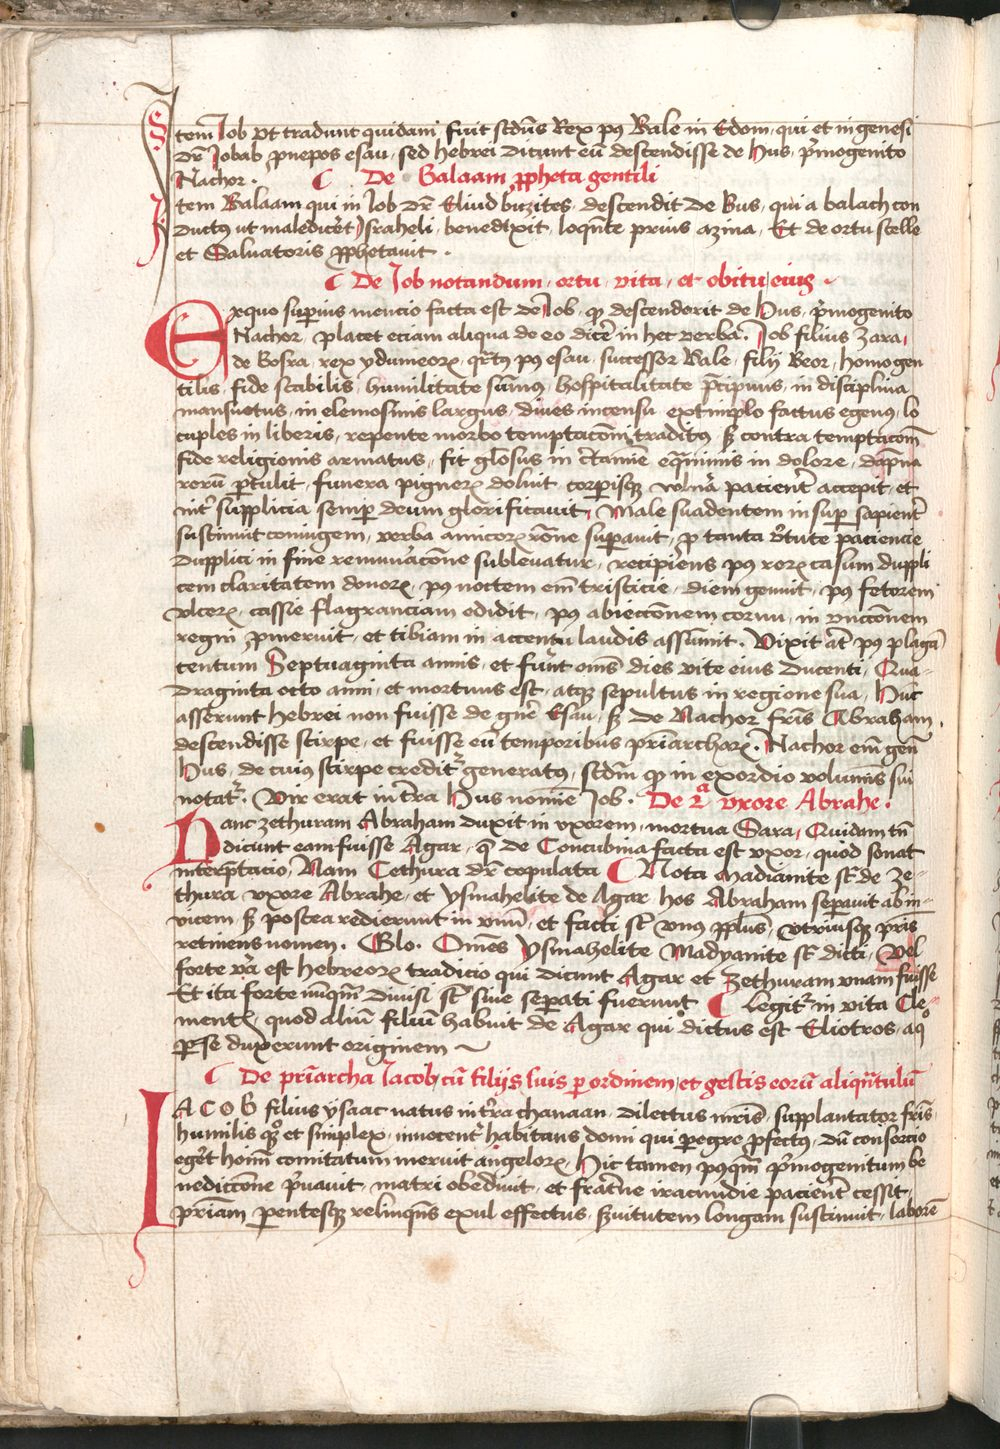 Item Job ut tradunt quidam fuit scd̄us Rex pꝰ Bale in Edom qui et in genesi
dr̄ Jobab ꝓnepos esau sed hebrei dicunt eū descendisse de Hus pͥmogenito
Nachor .  De Balaam ꝓpheta gentili
Item Balaam qui in Job dr̄ Eliud buzites descendit de Bus qui a balach con
ductus ut maledic̄et Israheli benedixit loquēte prius azina Et de ortu stelle
et Salvatoris ꝓphetavit .
De Job notandum ortu vita et obitu eius
Exquo suꝑius mencio facta est de Job ꝙ descenderit de Hus pͥmogenito
Nachor placet eciam aliqua de eo dic̄e in hec verba . Job filius Zara
de Bosra rex ydumeoꝝ qr̄tꝰ pꝰ esau successor Bale filij Beor homo gen
tilis fide stabilis humilitate sūmus hospitalitate p̄cipuus in disciplina
mansuetus in elemosinis largus dives incensu extimplo factus egenꝰ lo
cuples in liberis repente morbo temptacōni traditꝰ sꝫ contra temptacōm
fide religionis armatus fit gl̄osus in c̄tamīe eq̄nimis in dolore dāpna
rerū ꝑtulit funera pigneꝝ doluit corꝑisqꝫ vuln̄a pacient̄ accepit et
int̄ supplicia semꝑ deum glorificavit Male suadentem insuꝑ sapient̄
sustinuit coniugem verba amicoꝝ rōne suꝑavit ꝓ tanta v̄tute paciencie
dupplici in fine remun̄acōne sublevatur recipiens pꝰ reꝝ casum duppli
cem claritatem donoꝝ pꝰ noctem em̄ tristicie diem genuit pꝰ fetorem
ulceꝝ cassie flagranciam edidit pꝰ abiectōnem cornu in unctōnem
regni ꝓmeruit et tibiam in accentu laudis assūmit . Vixit at̄ pꝰ plagā
centum Septuaginta annis et fuer̄nt om̄s dies vite eius ducenti Qua-
draginta octo anni et mortuus est atqꝫ sepultus in regione sua Hūc
asserunt hebrei non fuisse de gn̄e Esau sꝫ de Nachor fr̄is Abraham
descendisse stirpe et fuisse eū temporibus pr̄iarchaꝝ . Nachor em̄ gen̄
Hus de cuiꝰ stirpe credit᷑ generatꝰ scdm̄ ꝙ in exordio voluminis sui
notat᷑ . Vir erat in t̄ra Hus nomine Job . De 2ᵃ uxore Abrahe .
Hanc zethuram Abraham duxit in uxorem mortua Sara Quidam tn̄
dicunt eam fuisse Agar q̄ de Concubina facta est uxor quod sonat
interp̄tacio Nam Cethura dr̄ copulata  Nota Madianite sc̄ de Ze-
thura uxore Abrahe et ysmahelite de Agar hos Abraham seꝑavit abin-
vicem sꝫ postea redierunt in unū et facti st̄ unus pplus utriusqꝫ pris
retinens nomen . Glo . Om̄es ysmahelite Madyanite st̄ dicti Vel
forte vā est hebreoꝝ tradicio qui dicunt Agar et Zethuram unam fuisse
Et ita forte nūqm̄ divisi st̄ sive seꝑati fuerunt  Legit᷑ in vita Cle-
mentꝭ quod aliū filiū habuit de Agar qui dictus est Eliotros a qͦ
ꝑse duxerunt originem
De pr̄iarcha Jacob cū filijs suis ꝑ ordinem et gestis eorū aliqn̄tulū
IACOB filius ysaac natus in t̄ra chanaan dilectus mr̄is supplantator fr̄is
humilis qͦꝫ et simplex innocent̄ habitans domi qui ꝑegre ꝓfectꝰ dū consorcio
eḡet homī comitatum meruit angeloꝝ Hic tamen pꝰqm̄ pͥmogenitum be
nedictōne pͥvavit matri obedivit et frat̄ne iracundie pacient̄ cessit
pr̄iam ꝑentesqꝫ relinqn̄s exul effectus s̄vitutem longam sustinuit laborē